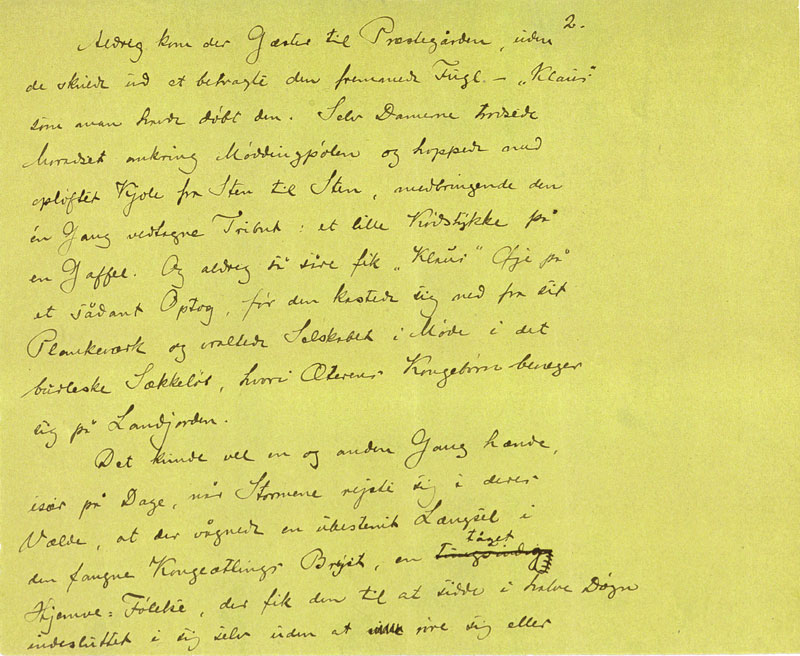 2.
Aldrig kom der Gæster til Præstegården, uden
de skulde ud at betragte den fremmede Fugl – „Klaus“
som man havde døbt den. Selv Damerne trodsede
Moradset omkring Møddingpølen og hoppede med
opløftet Kjole fra Sten til Sten, medbringende den
én Gang vedtagne Tribut: et lille Kødstykke på
en Gaffel. Og aldrig så såre fik „Klaus“ Øje på
et sådant Optog, før den kastede sig ned fra sit
Plankeværk og vraltede Selskabet i Møde i det
burleske Sækkeløb, hvori Æterens Kongebørn bevæger
sig på Landjorden.
Det kunde vel en og anden Gang hænde,
især på Dage, når Stormene rejste sig i deres
Vælde, at der vågnede en ubestemt Længsel i
tåget
den fangne Kongeætlings Bryst, en
Hjemve=Følelse, der fik den til at sidde i halve Døgn
indesluttet i sig selv uden at røre sig eller